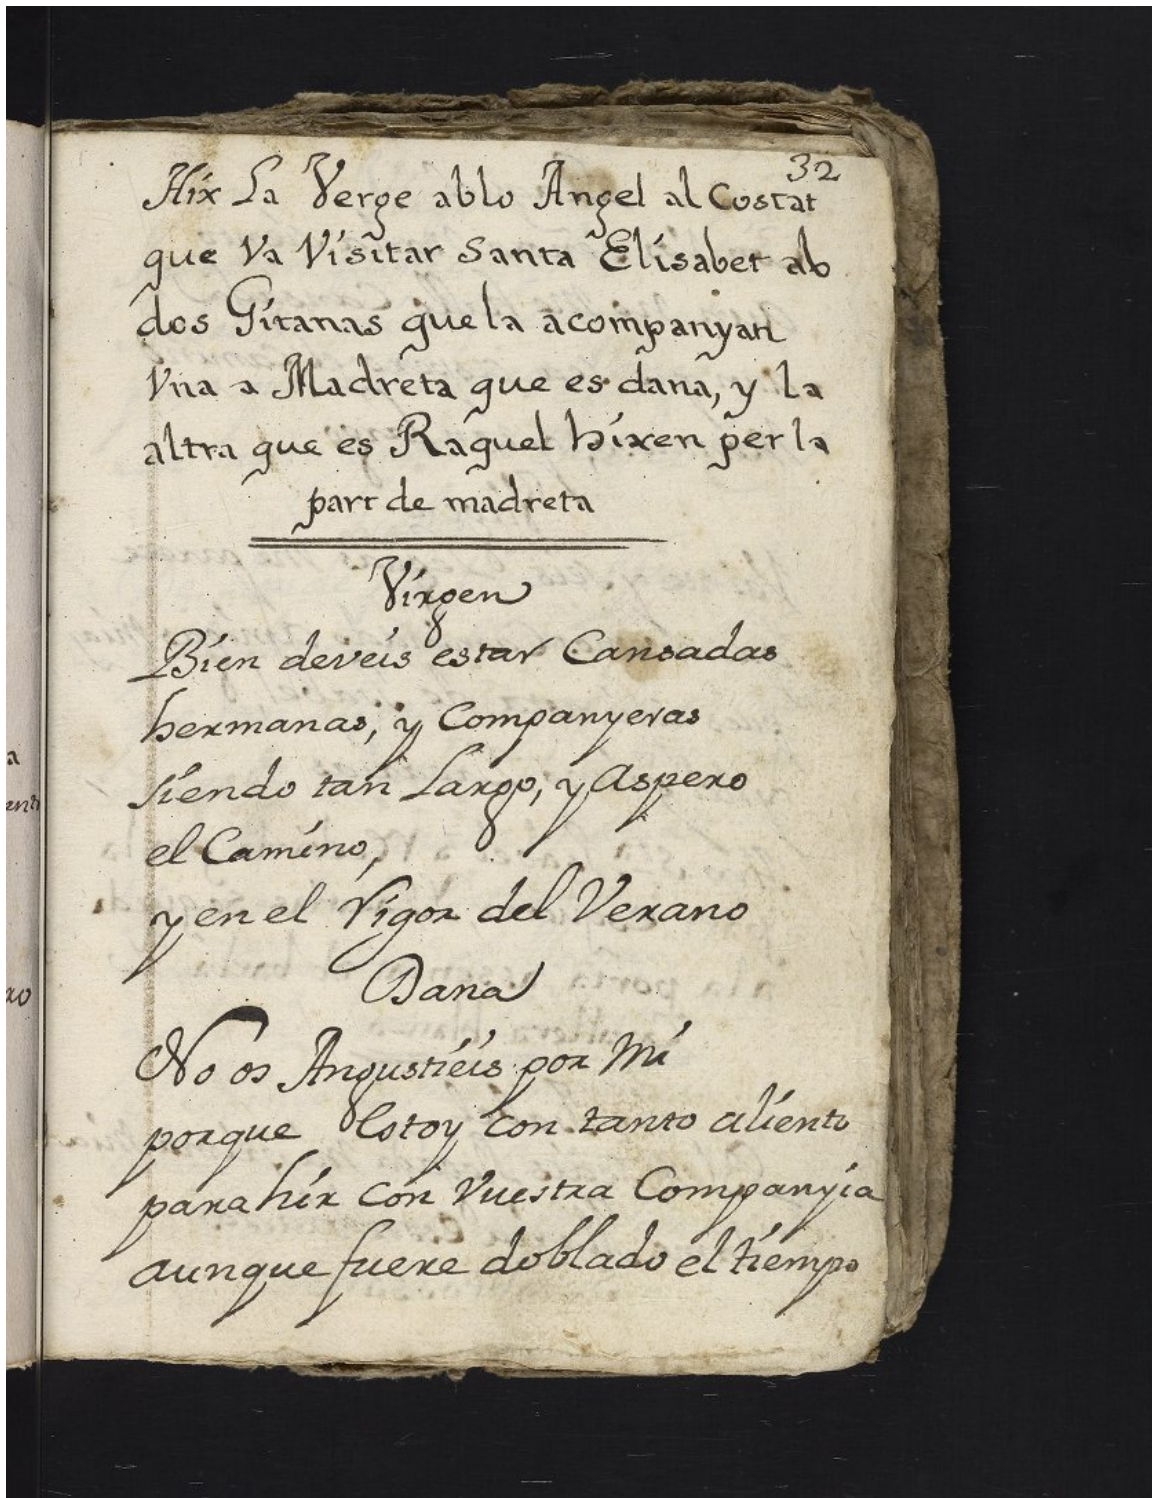 32
Hix La Verge ablo Angel al Costat
que Va Visitar Santa Elisabet ab
dos Gitanas que la acompanyan
Vna a Madreta que es dana, y la
altra que es Raquel hixen per la
part de madreta
Virgen
Bien deveis estar Cansadas
hermanas, y Companyeras
siendo tan Largo, y Aspero
el Camino,
y en el Vigor del Verano
Dana
No os Angustieis por Mi
porque Estoy con tanto aliento
para hir con Vuestra Companyia
aunque fuere doblado el tiempo